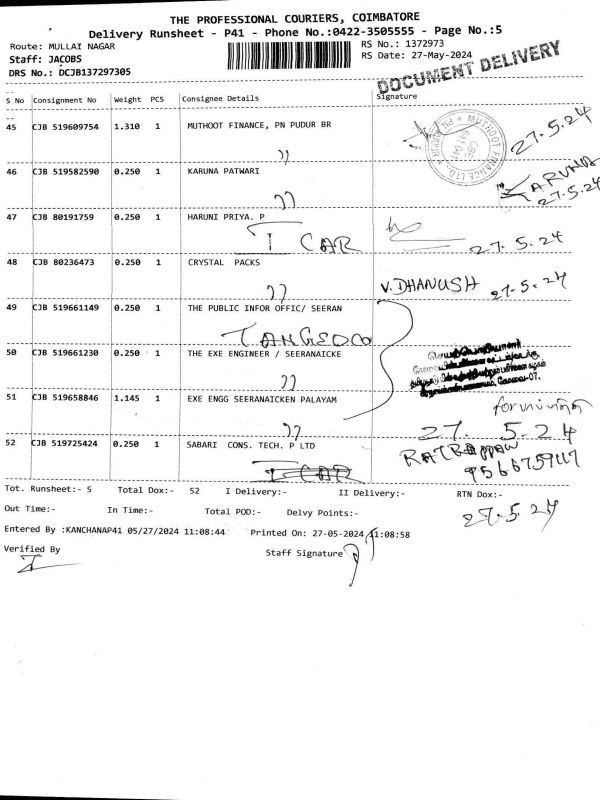 THE PROFESSIONAL COURIERS, COIMBATORE
Delivery Runsheet - P41 - Phone No.:0422-3505555 - Page No.:5
Route: MULLAI NAGAR
RS No.: 1372973
Staff: JACOBS
RS Date: 27-May-2024
DRS No.: DCJB137297305
DOCUMENT DELIVERY
S No Consignment No Weight PCS Consignee Details Signature
45 CJB 519609754 1.310 1 MUTHOOT FINANCE, PN PUDUR BR
MUTHOOT FINANCE LTD.
27-5.24
46 CJB 519582590 0.250 1 KARUNA PATWARI
KARUNA
27-5.24
47 CJB 80191759 0.250 1 HARUNI PRIYA. P
I CAR
27.5.24
48 CJB 80236473 0.250 1 CRYSTAL PACKS
V.DHANUSH 27-5.24
49 CJB 519661149 0.250 1 THE PUBLIC INFOR OFFIC/ SEERAN
TANGEDCO
50 CJB 519661230 0.250 1 THE EXE ENGINEER / SEERANAICKE
51 CJB 519658846 1.145 1 EXE ENGG SEERANAICKEN PALAYAM
27. 5.24
52 CJB 519725424 0.250 1 SABARI CONS. TECH. P LTD
I CAR
Tot. Runsheet:- 5 Total Dox:- 52 I Delivery:- II Delivery:- RTN Dox:-
Out Time:- In Time:- Total POD:- Delvy Points:-
27.5.24
Entered By :KANCHANAP41 05/27/2024 11:08:44 Printed On: 27-05-2024 11:08:58
Verified By Staff Signature